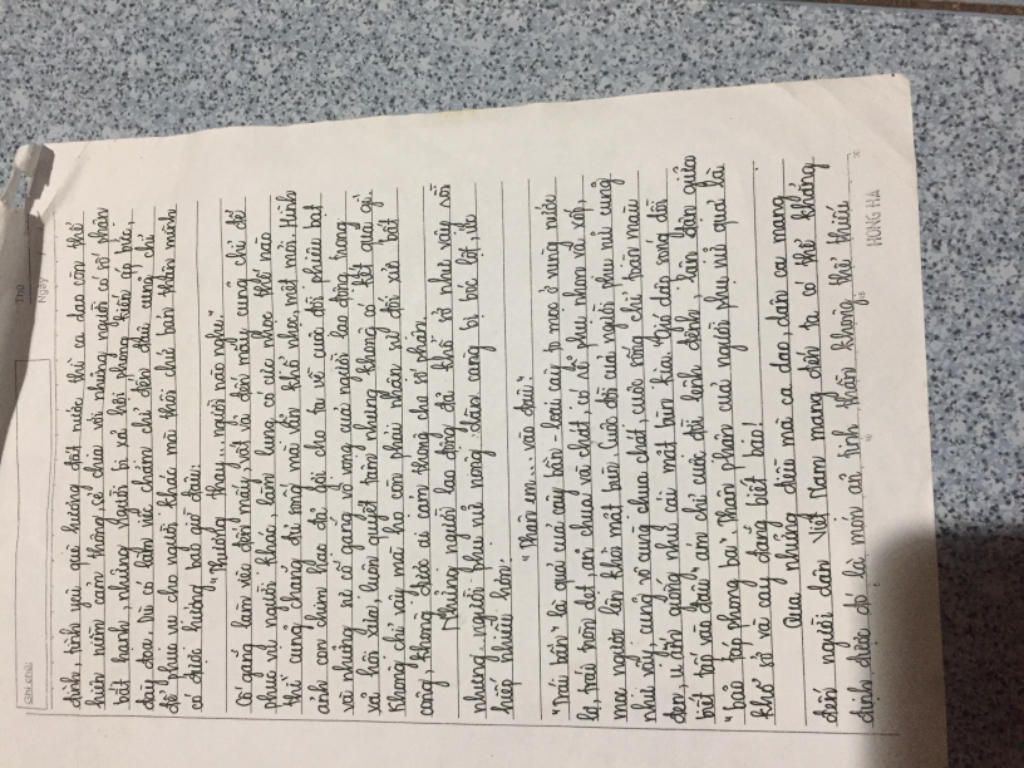 Thứ
Ngày
Ghi chú:
đình, tình yêu quê hương đất nước thì ca dao còn thể
hiện niềm cảm thông, sẻ chia với những người có số phận
bất hạnh, những người bị xã hội phong kiến áp bức,
đày đọa. Dù có làm việc chăm chỉ đến đâu cũng chỉ
để phục vụ cho người khác mà thôi chứ bản thân mình
có được hưởng bao giờ đâu:
"Thương thay... người nào nghe"
Cố gắng làm việc đến mấy, vất vả đến mấy cũng chỉ để
phục vụ người khác, làm lụng có cực nhọc thế nào
thì cũng chẳng đổi trông mà lên khổ nhục, mệt mỏi. Hình
ảnh con chim hạc đã gợi cho ta về cuộc đời phiêu bạt
và những nỗ cố gắng vô vọng của người lao động trong
xã hội xưa, luôn quyết tâm nhưng không có kết quả gì.
Không chỉ vậy mà họ còn phải nhận sự đối xử bất
công, không được ai cảm thông cho số phận.
Những người lao động đã khổ sở như vậy rồi
nhưng người phụ nữ nông dân càng bị bóc lột, ức
hiếp nhiều hơn:
"Thân em... vào đâu"
"Trái bần" là quả của cây bần - loài cây mọc ở vùng nước
lợ, trái tròn dẹt, ăn chua và chát, có rễ phụ nhọn và xốp,
mọc ngược lên khỏi mặt bùn. Cuộc đời của người phụ nữ cũng
như vậy, cũng vô cùng chua chát, cuộc sống chỉ toàn màu
đen, u ẩn giống như cái mặt bùn kia. "Gió dập sóng dồi
biết tấp vào đâu" ám chỉ cuộc đời lênh đênh, lận đận qua
"bão táp phong ba". Thân phận của người phụ nữ quả là
khổ sở và cay đắng biết bao!
Qua những điều mà ca dao, dân ca mang
đến người dân Việt Nam mang đến ta có thể khẳng
định được đó là món ăn tinh thần không thể thiếu
HONG HA